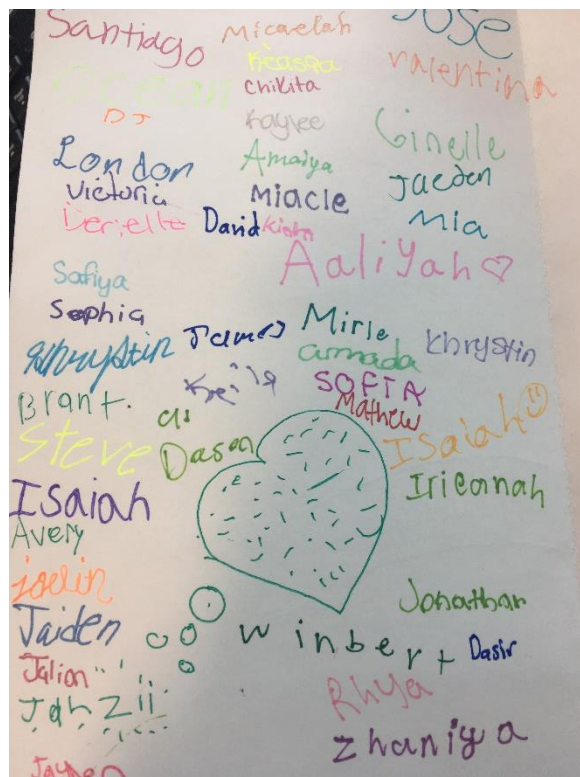 Santiago Micaelah JOSE
Keassa
Chikita Valentina
Ocean
DJ Kaylee Ginelle
London Amaiya Jaeden
Victoria Miacle Mia
Derielle David Kiara
Aaliyah
Safiya
Sophia
Khrystin James Mirle Khrystin
armada
Keila SOFIA
Brant. Mathew
Steve Dasan Isaiah
Isaiah Iricanah
Avery
joelin
Jonathan
Jaiden Winbert Dasir
Jalion
Rhya
Jahzii
Zhaniya
Jayden